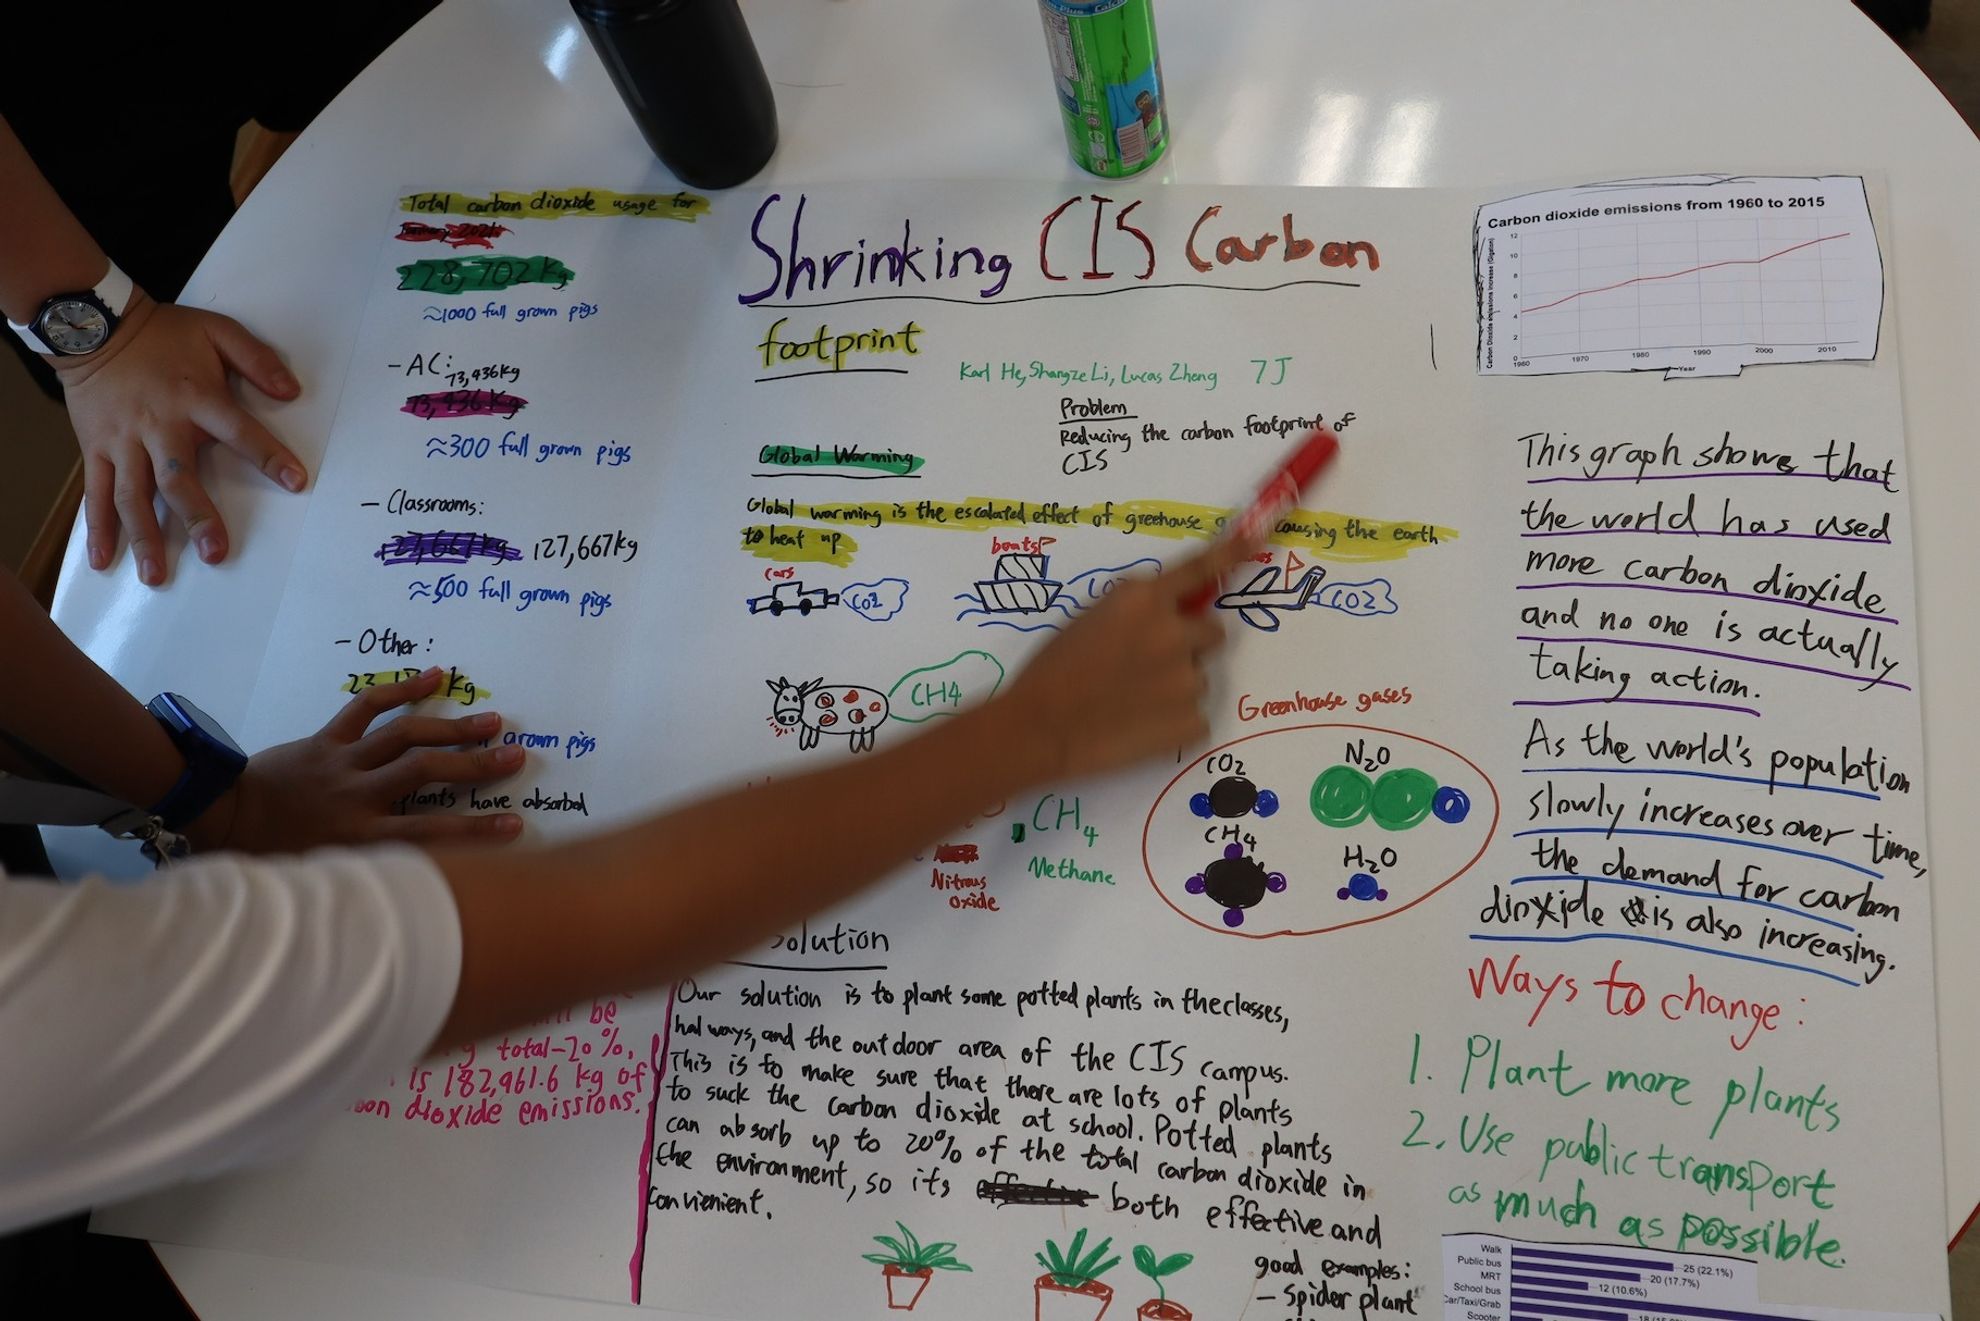 Total carbon dioxide usage for
228,702 Kg
≈1000 full grown pigs
- AC:
73,436kg
73,436 Kg
≈300 full grown pigs
- Classrooms:
127,667kg 127,667kg
≈500 full grown pigs
- Other:
kg
grown pigs
plants have absorbed
be
total-20%.
is 182,961.6 kg of
dioxide emissions.
Shrinking CIS Carbon
footprint
Karl He, Shangze Li, Lucas Zheng 7J
Problem
Reducing the carbon footprint of
CIS
Global Warming
Global warming is the escalated effect of greenhouse causing the earth
to heat up
cars
CO2
boats
CO2
CO2
CH4
Nitrous
Oxide
CH4
Methane
Greenhouse gases
CO2
N2O
CH4
H2O
Solution
Our solution is to plant some potted plants in the classes,
hallways, and the outdoor area of the CIS campus.
This is to make sure that there are lots of plants
to suck the carbon dioxide at school. Potted plants
can absorb up to 20% of the total carbon dioxide in
the environment, so its both effective and
convienient.
good examples:
- Spider plant
Carbon dioxide emissions from 1960 to 2015
Carbon Dioxide emissions increase (Gigaton)
12
10
8
6
4
2
0
1960
1970
1980
1990
2000
2010
Year
This graph shows that
the world has used
more carbon dioxide
and no one is actually
taking action.
As the world's population
slowly increases over time,
the demand for carbon
dioxide is also increasing.
Ways to change:
1. Plant more plants
2. Use public transport
as much as possible.
Walk
Public bus
25 (22.1%)
MRT
20 (17.7%)
School bus
12 (10.6%)
Car/Taxi/Grab
Scooter